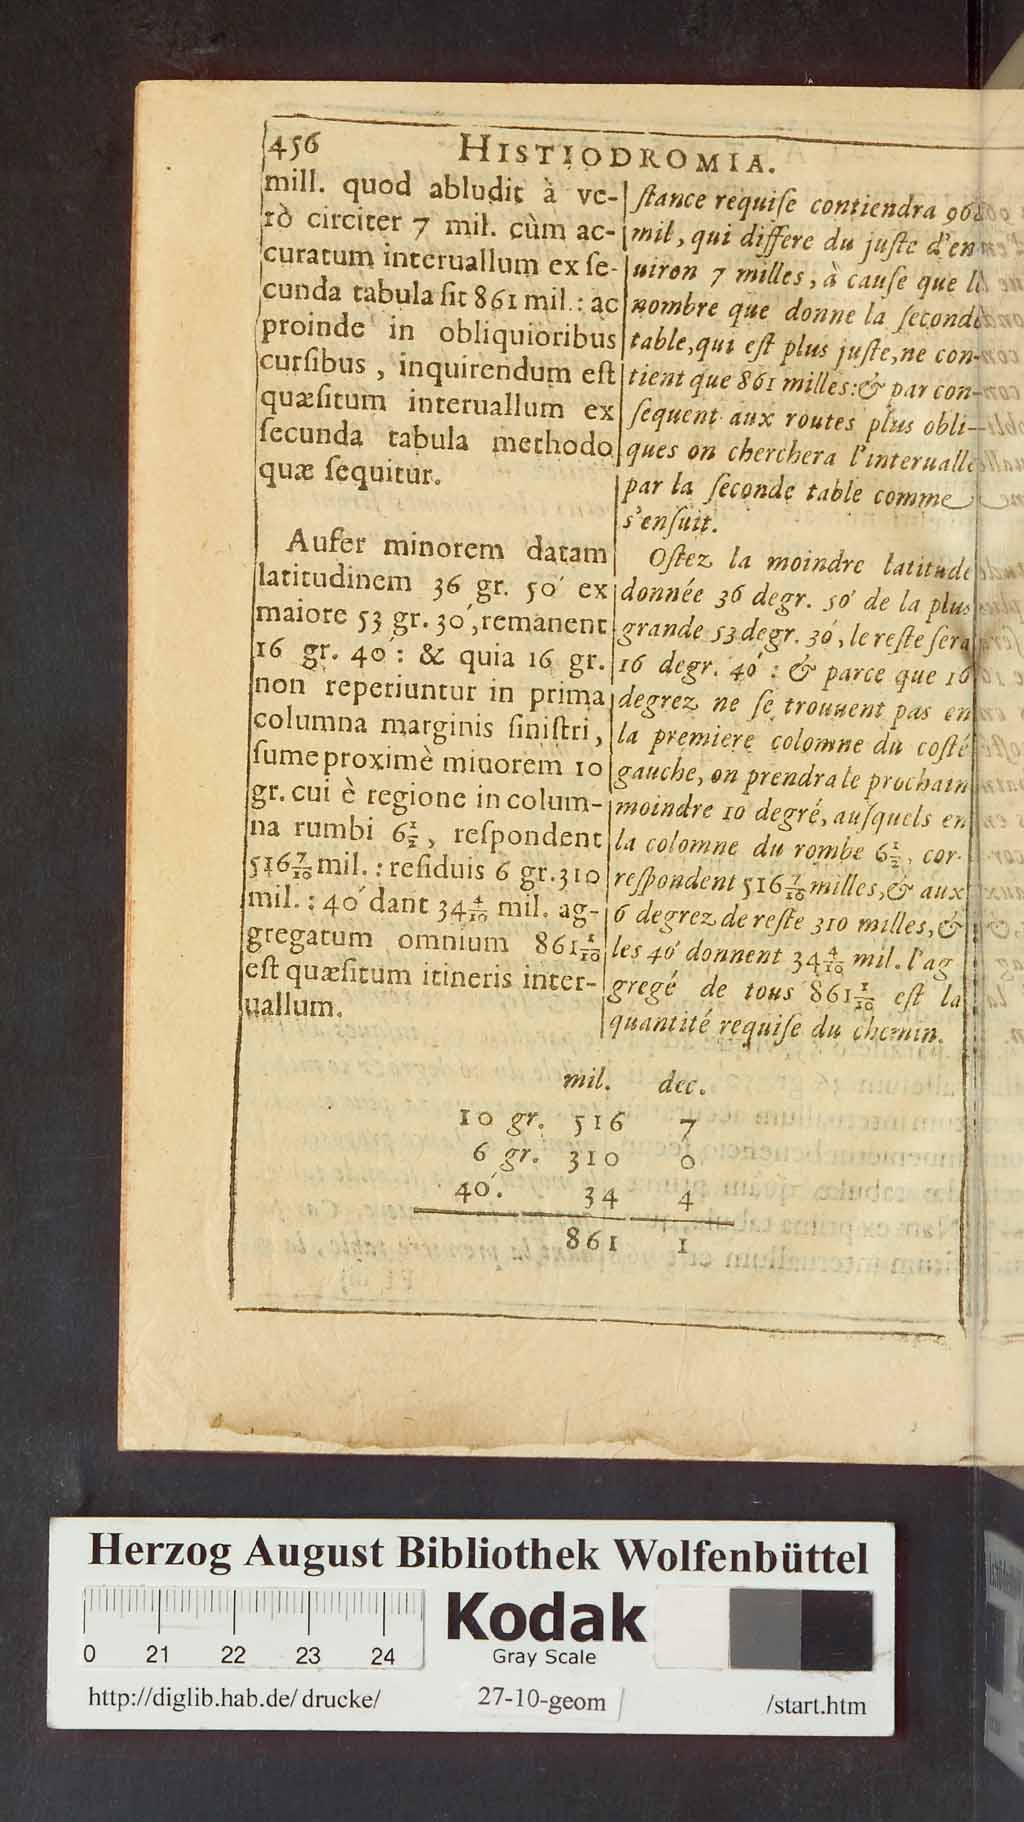 456 HISTIODROMIA.
mill. quod abludit à ve-
rò circiter 7 mil. cùm ac-
curatum interuallum ex ſe-
cunda tabula ſit 861 mil.: ac
proinde in obliquioribus
curſibus, inquirendum eſt
quæſitum interuallum ex
ſecunda tabula methodo
quæ ſequitur.
Aufer minorem datam
latitudinem 36 gr. 50′ ex
maiore 53 gr. 30′, remanent
16 gr. 40′: & quia 16 gr.
non reperiuntur in prima
columna marginis ſiniſtri,
ſume proximè miuorem 10
gr. cui è regione in colum-
na rumbi 6½, reſpondent
516 7/10 mil.: reſiduis 6 gr. 310
mil.: 40′ dant 34 4/10 mil. ag-
gregatum omnium 861 1/10
eſt quæſitum itineris inter-
uallum.
ſtance requiſe contiendra 968
mil, qui differe du juſte d'en
uiron 7 milles, à cauſe que le
nombre que donne la ſeconde
table, qui eſt plus juſte, ne con-
tient que 861 milles: & par con-
ſequent aux routes plus obli-
ques on cherchera l'interualle
par la ſeconde table comme
s'enſuit.
Oſtez la moindre latitude
donnée 36 degr. 50′ de la plus
grande 53 degr. 30′, le reſte ſera
16 degr. 40′: & parce que 16
degrez ne ſe trouuent pas en
la premiere colomne du coſté
gauche, on prendra le prochain
moindre 10 degré, auſquels en
la colomne du rombe 6½, cor-
reſpondent 516 7/10 milles, & aux
6 degrez de reſte 310 milles, &
les 40′ donnent 34 4/10 mil. l'ag
gregé de tous 861 1/10 eſt la
quantité requiſe du chemin.
mil. dec.
10 gr. 516 7
6 gr. 310 0
40′. 34 4
861 1
Herzog August Bibliothek Wolfenbüttel
Kodak
Gray Scale
0 21 22 23 24
http://diglib.hab.de/drucke/ 27-10-geom /start.htm